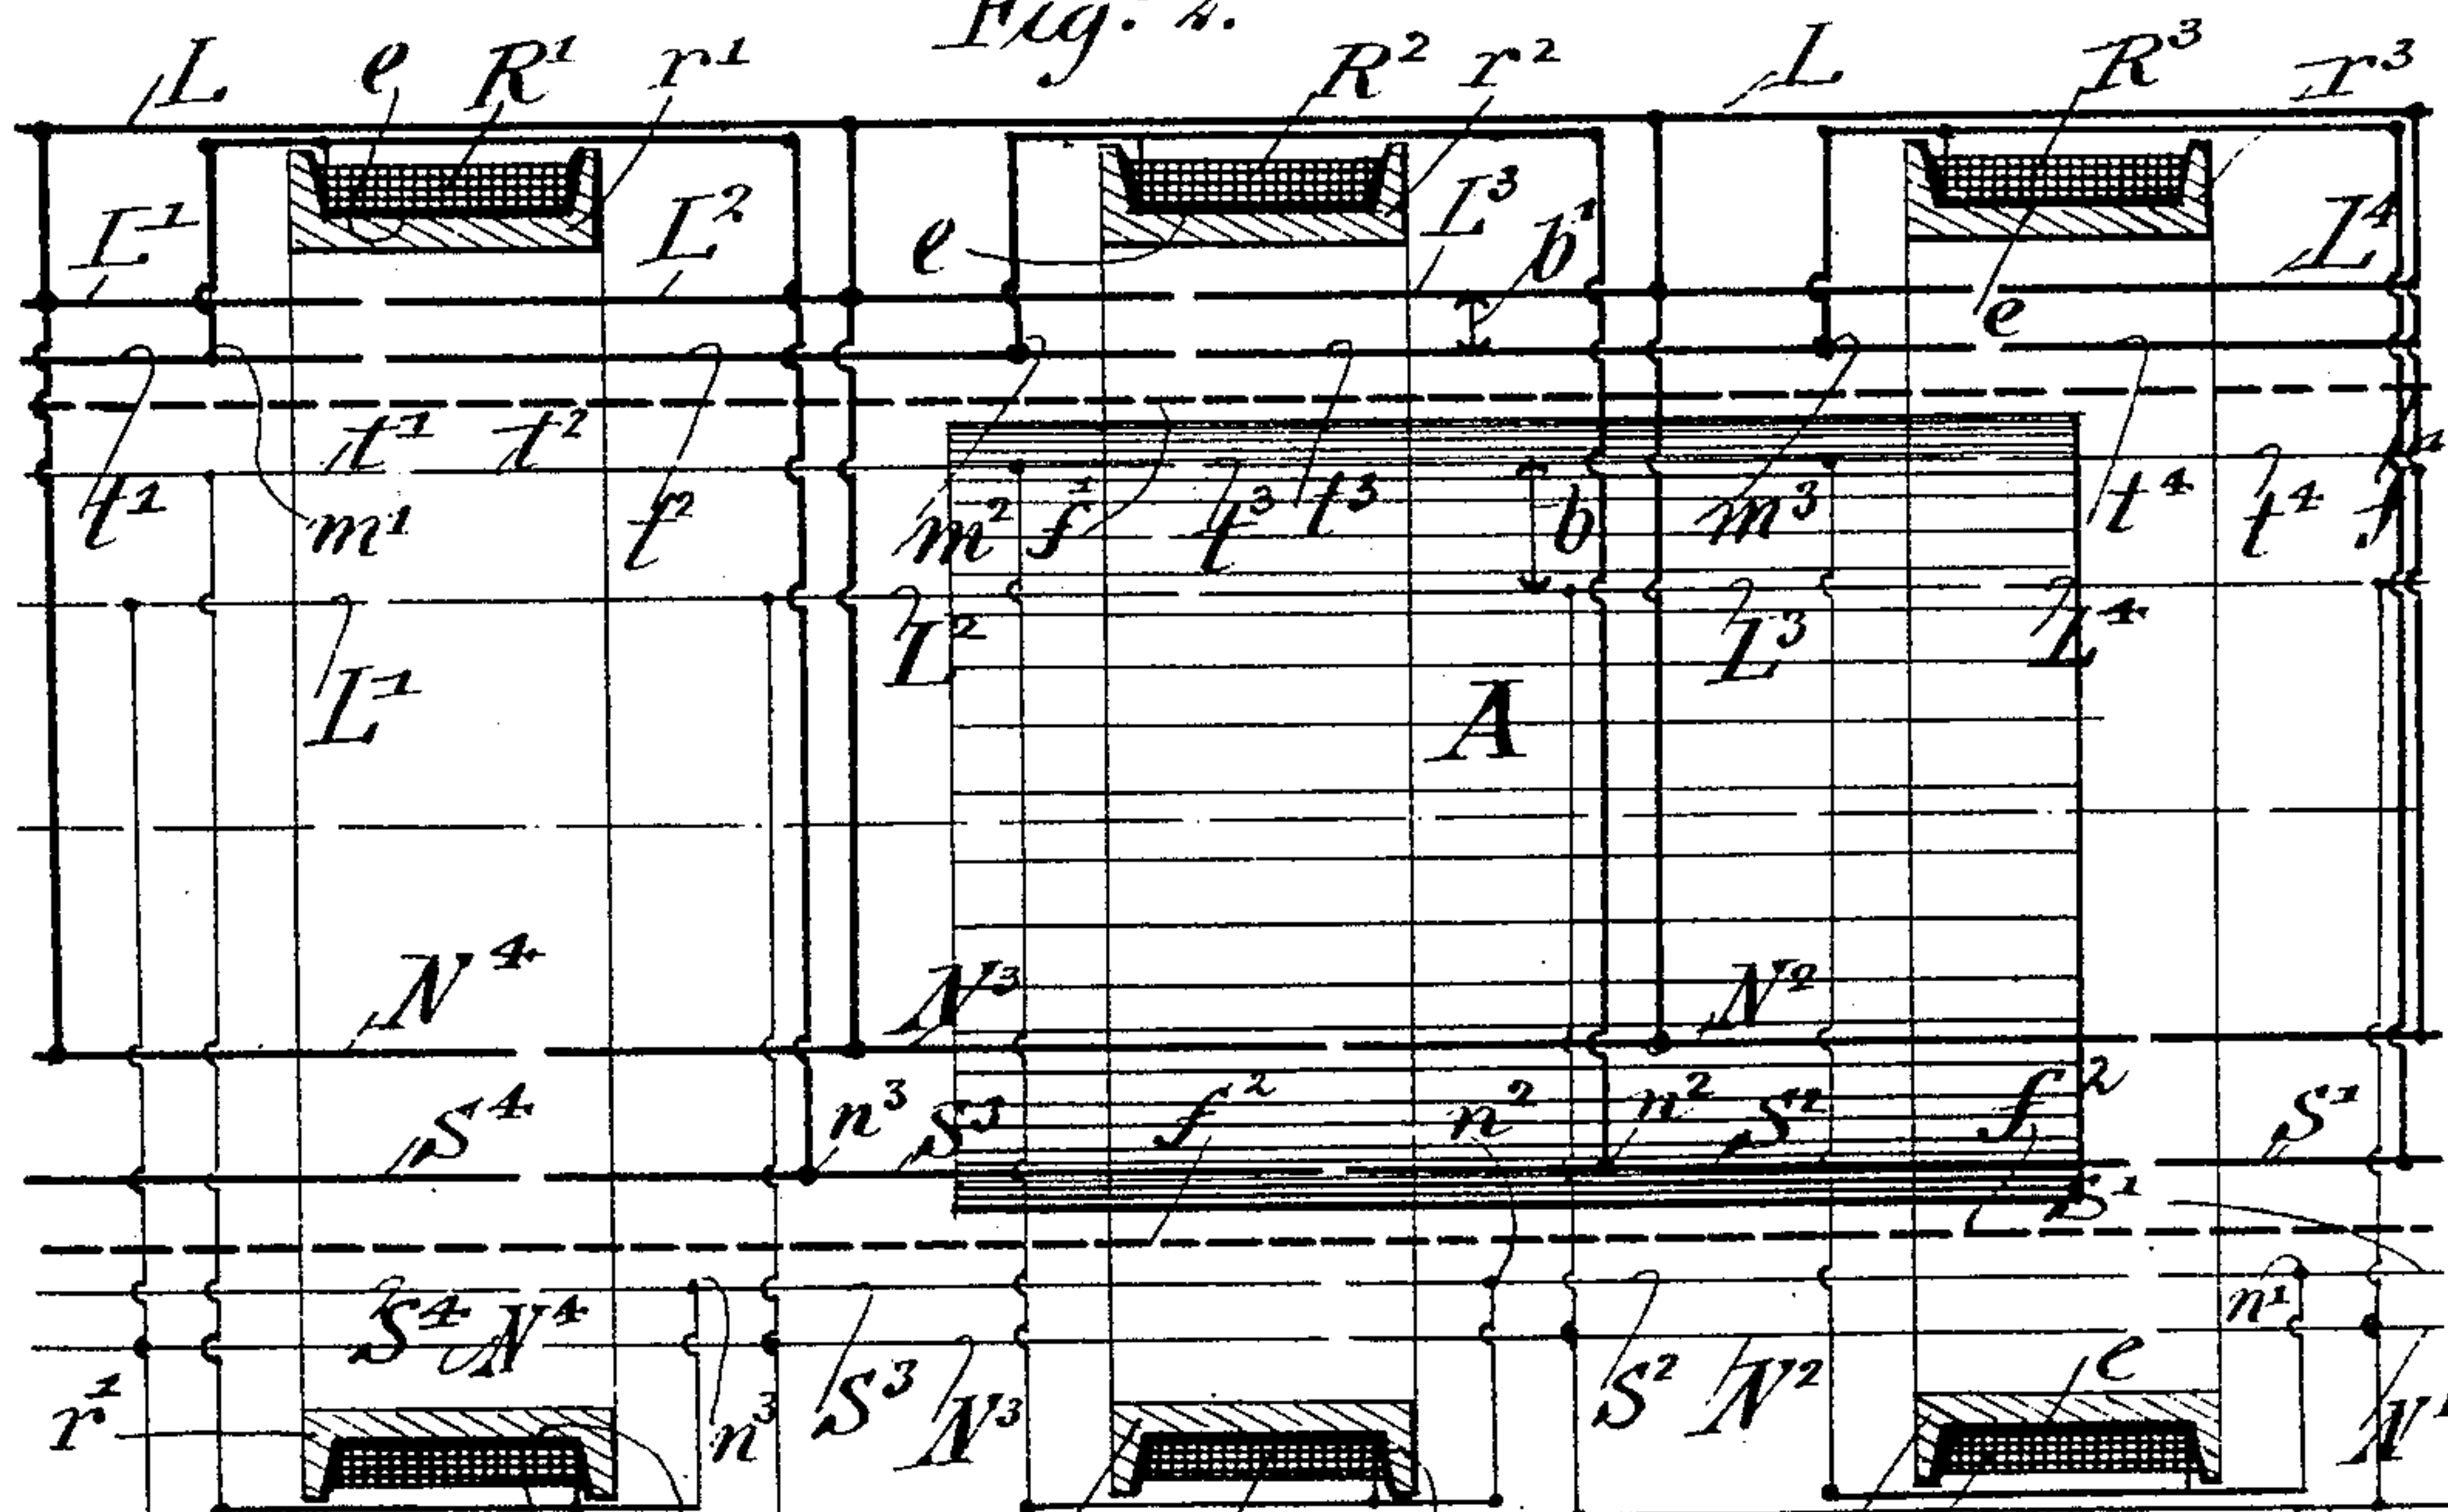 Fig. 4.
L e R¹ r¹ R² r² L R³ r³
L¹ L² e L³ b¹ L⁴
e
t¹ t²
t¹ m¹ t² m² f¹ t³ t³ b m³ t⁴ t⁴ f¹
L¹ L² L³ L⁴
A
N⁴ N³ N²
S⁴ n³ S³ f² n² n² S² f² S¹
S¹
S⁴ N⁴ n¹
r¹ n³ S³ N³ S² N² e N¹